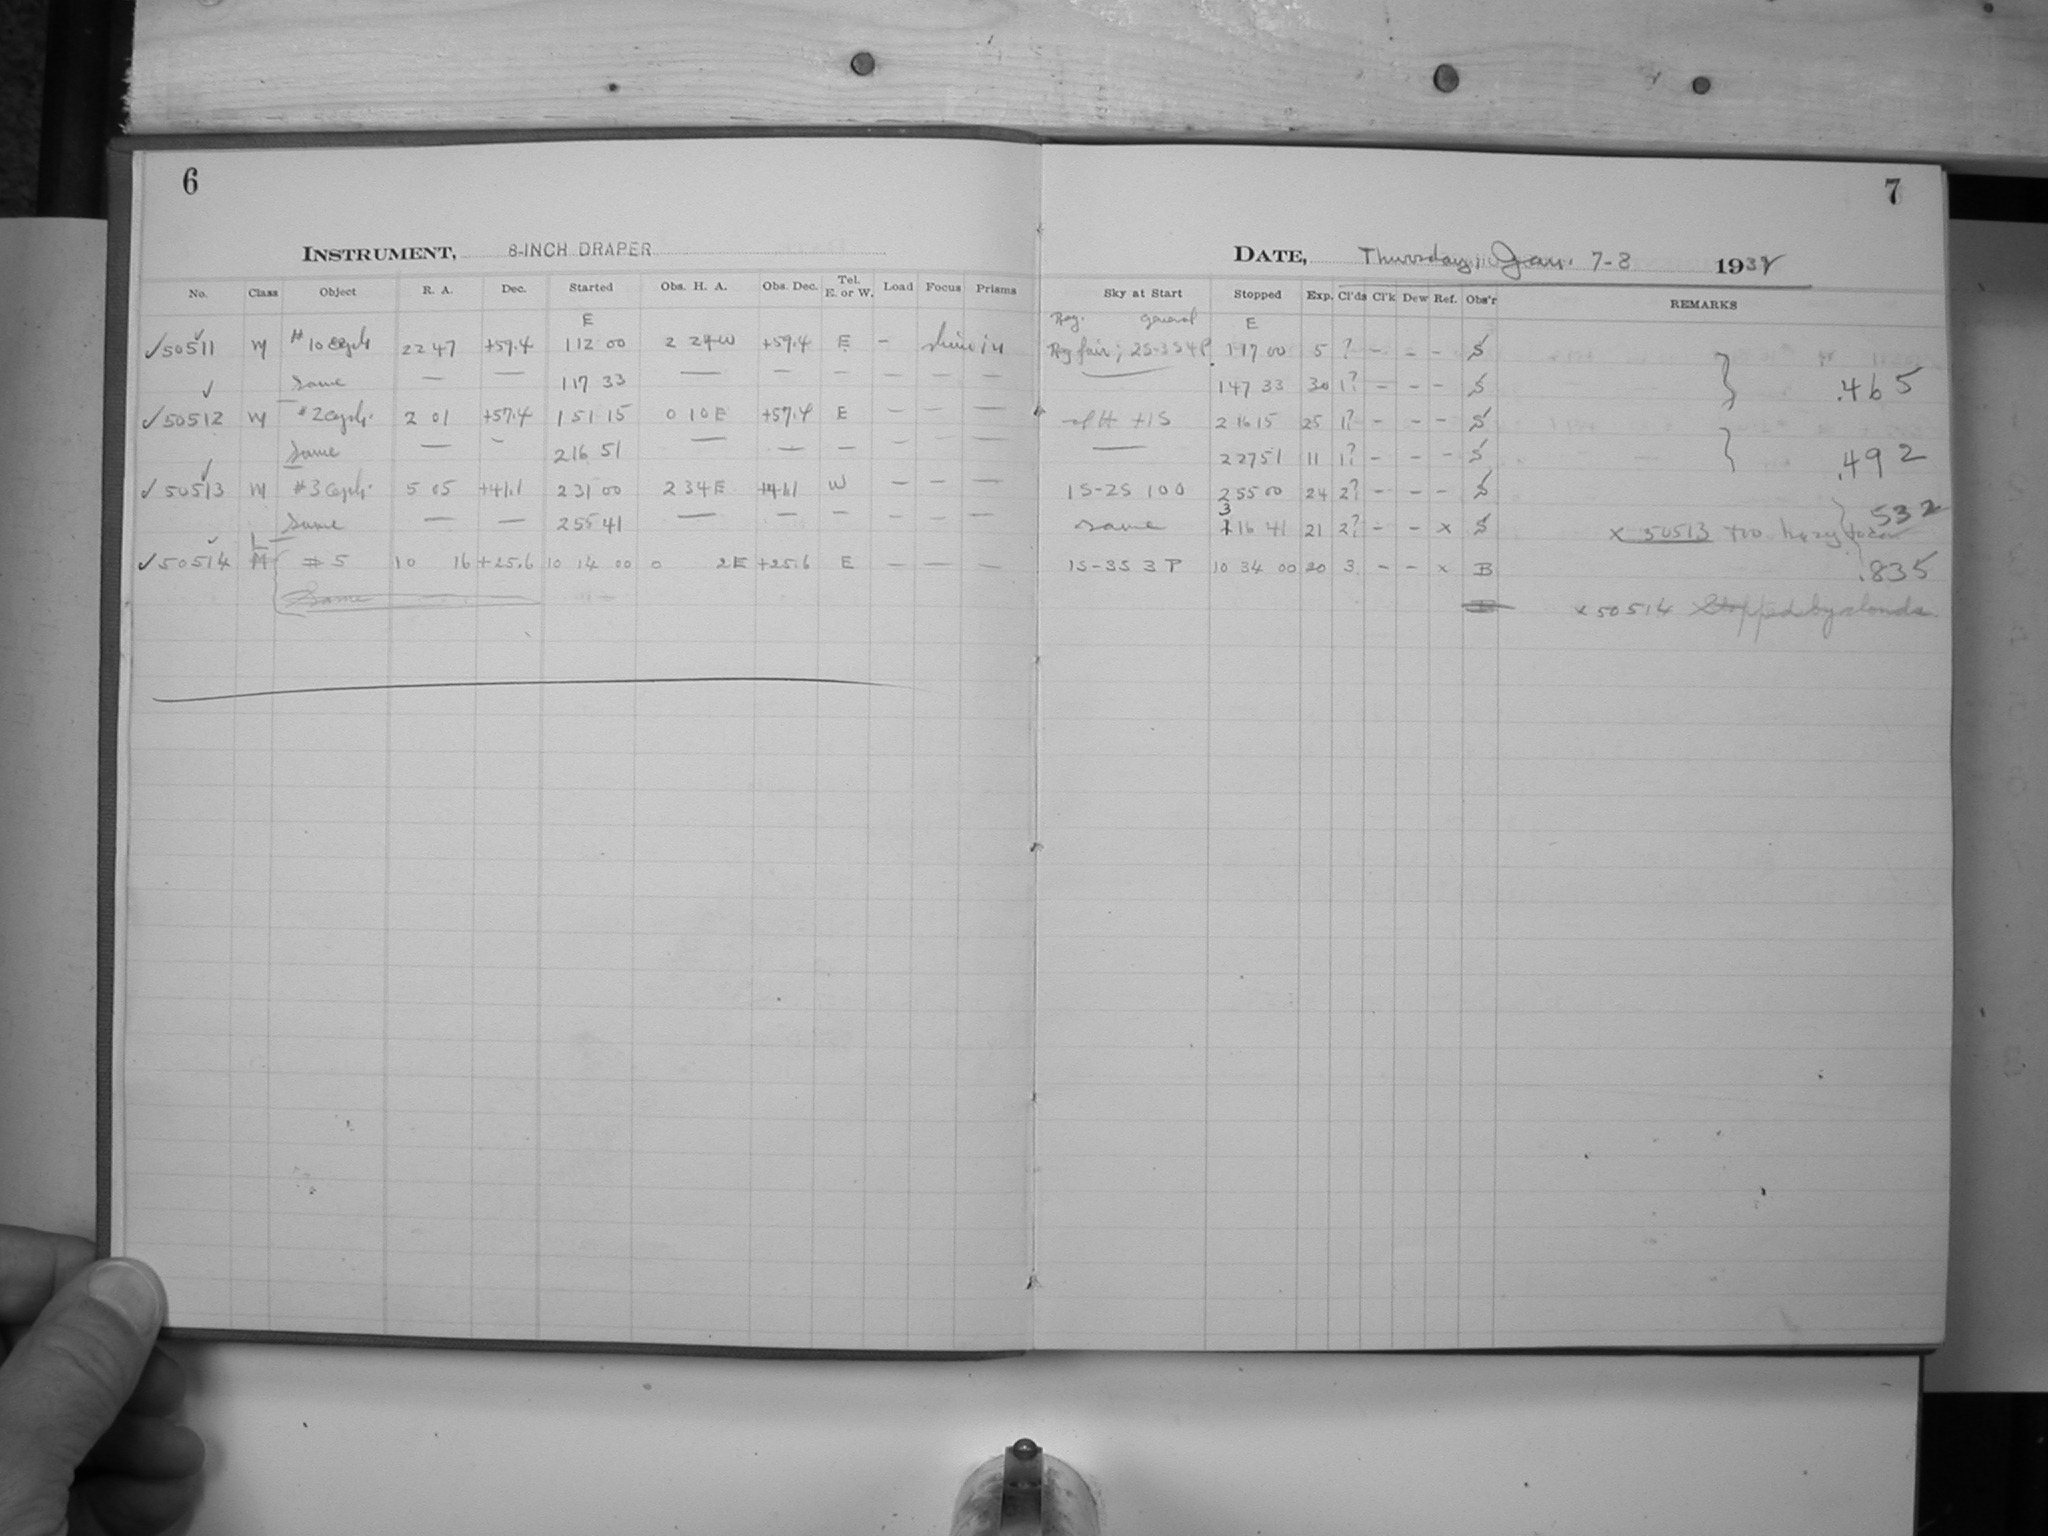 6
INSTRUMENT, 8-INCH DRAPER
No. Class Object R. A. Dec. Started Obs. H. A. Obs. Dec. Tel. E. or W. Load Focus Prisms
E
✓50511 M #10 22 47 +59.4 1 12 00 2 24W +59.4 E –
same — — 1 17 33 — — — — — —
✓50512 M #2 2 01 +57.4 1 51 15 0 10E +57.4 E – – —
same — – 2 16 51 — — — – – —
✓50513 M #3 5 05 +41.1 2 31 00 2 34E +41.1 W – – —
same — — 2 55 41 — — – – – —
✓50514 L #5 10 16 +25.6 10 14 00 0 2E +25.6 E – — —
Same
7
DATE, Thursday, Jan. 7-8 1937
Sky at Start Stopped Exp. Cl'ds Cl'k Dew Ref. Obs'r REMARKS
Reg. general E
fair; 2S-3S4P 1 17 00 5 ? – – – S
— 1 47 33 30 1? – – – S .465
+1S 2 16 15 25 1? – – – S
— 2 27 51 11 1? – – – S .492
1S-2S 100 2 55 00 24 2? – – – S
same 3 16 41 21 2? – – x S x 50513 too hazy 532
1S-3S 3P 10 34 00 20 3 – – x B .835
x 50514 Stopped by clouds